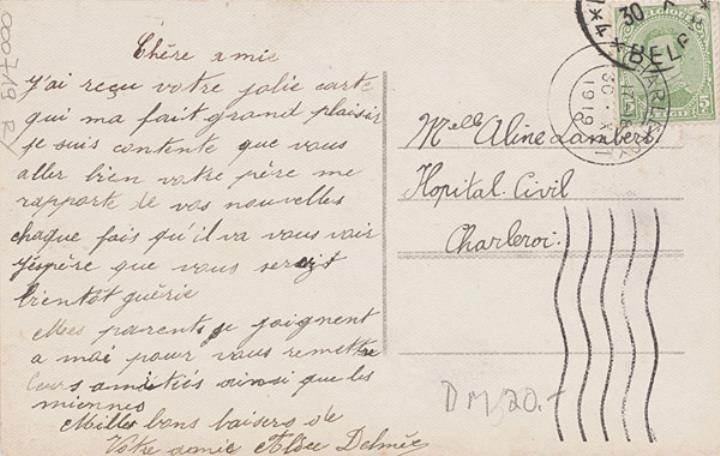 Chère amie
J'ai reçu votre jolie carte
qui ma fait grand plaisir
je suis contente que vous
aller bien votre père me
rapporte de vos nouvelles
chaque fois qu'il va vous voir
J'éspère que vous serez
bientôt guérie
Mes parents se joignent
a moi pour vous remettre
leurs amitiés ainsi que les
miennes
Milles bons baisers de
Votre amie Aldée Delmée
Melle Aline Lambert
Hopital Civil
Charleroi
DM 20.-
000719 R
30
BELG
1919